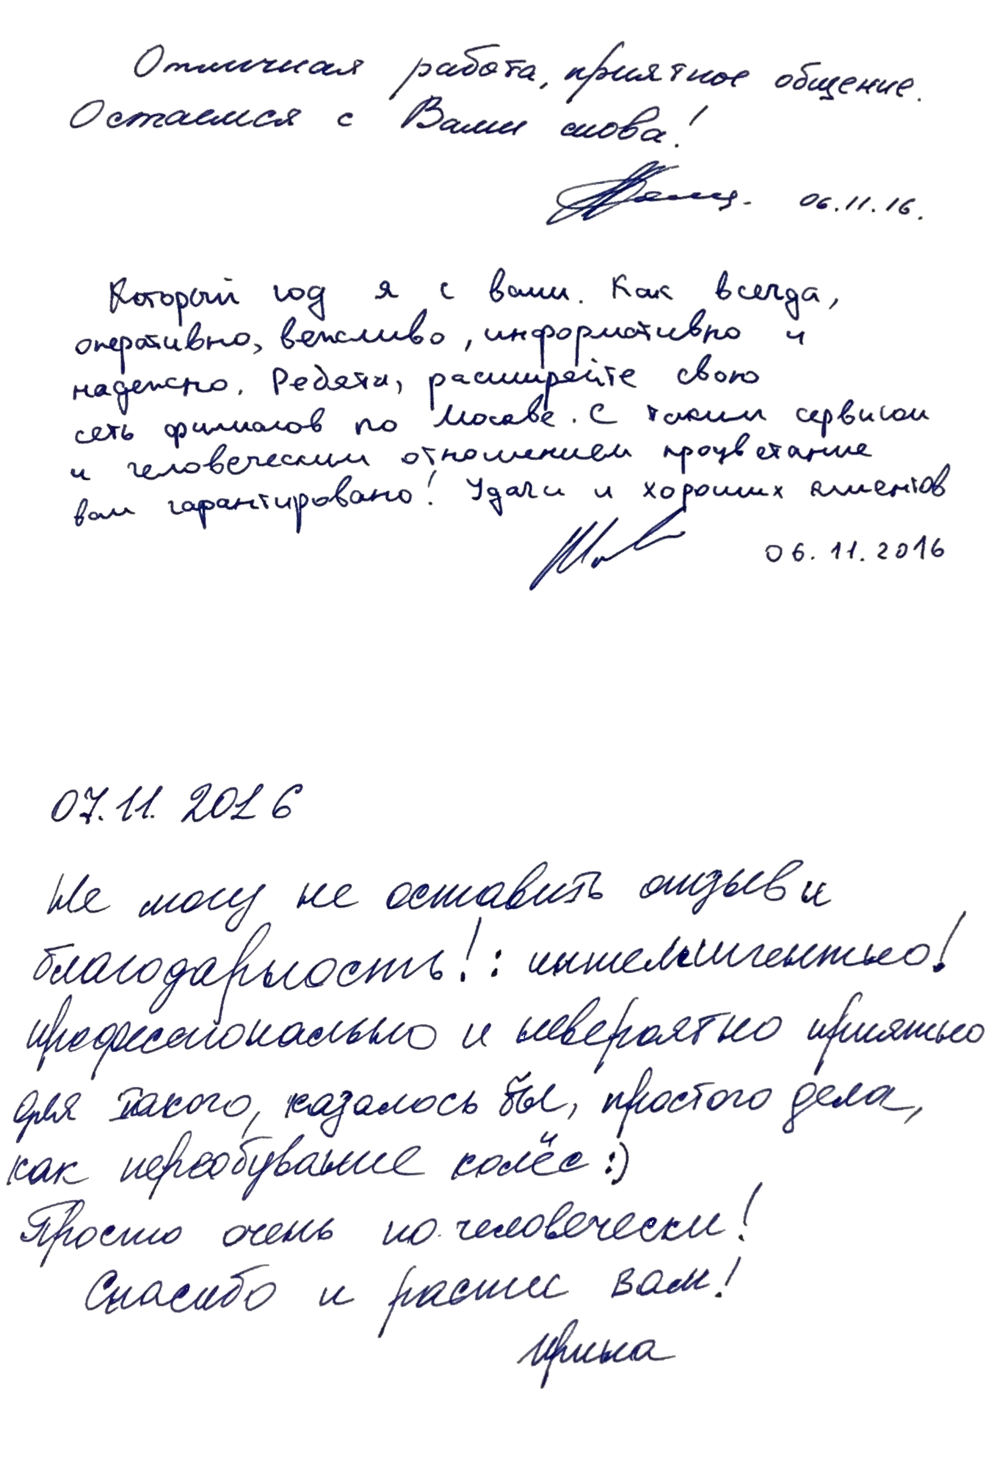 Отличная работа, приятное общение.
Остаемся с Вами снова!
06.11.16.
Который год я с вами. Как всегда,
оперативно, вежливо, информативно и
надежно. Ребята, расширяйте свою
сеть филиалов по Москве. С таким сервисом
и человеческим отношением процветание
вам гарантировано! Удачи и хороших клиентов
06.11.2016
07.11.2016
Не могу не оставить отзыв и
благодарность!: интеллигентно!
профессионально и невероятно приятно
для такого, казалось бы, простого дела,
как переобувание колёс :)
Просто очень по-человечески!
Спасибо и расти вам!
Ирина